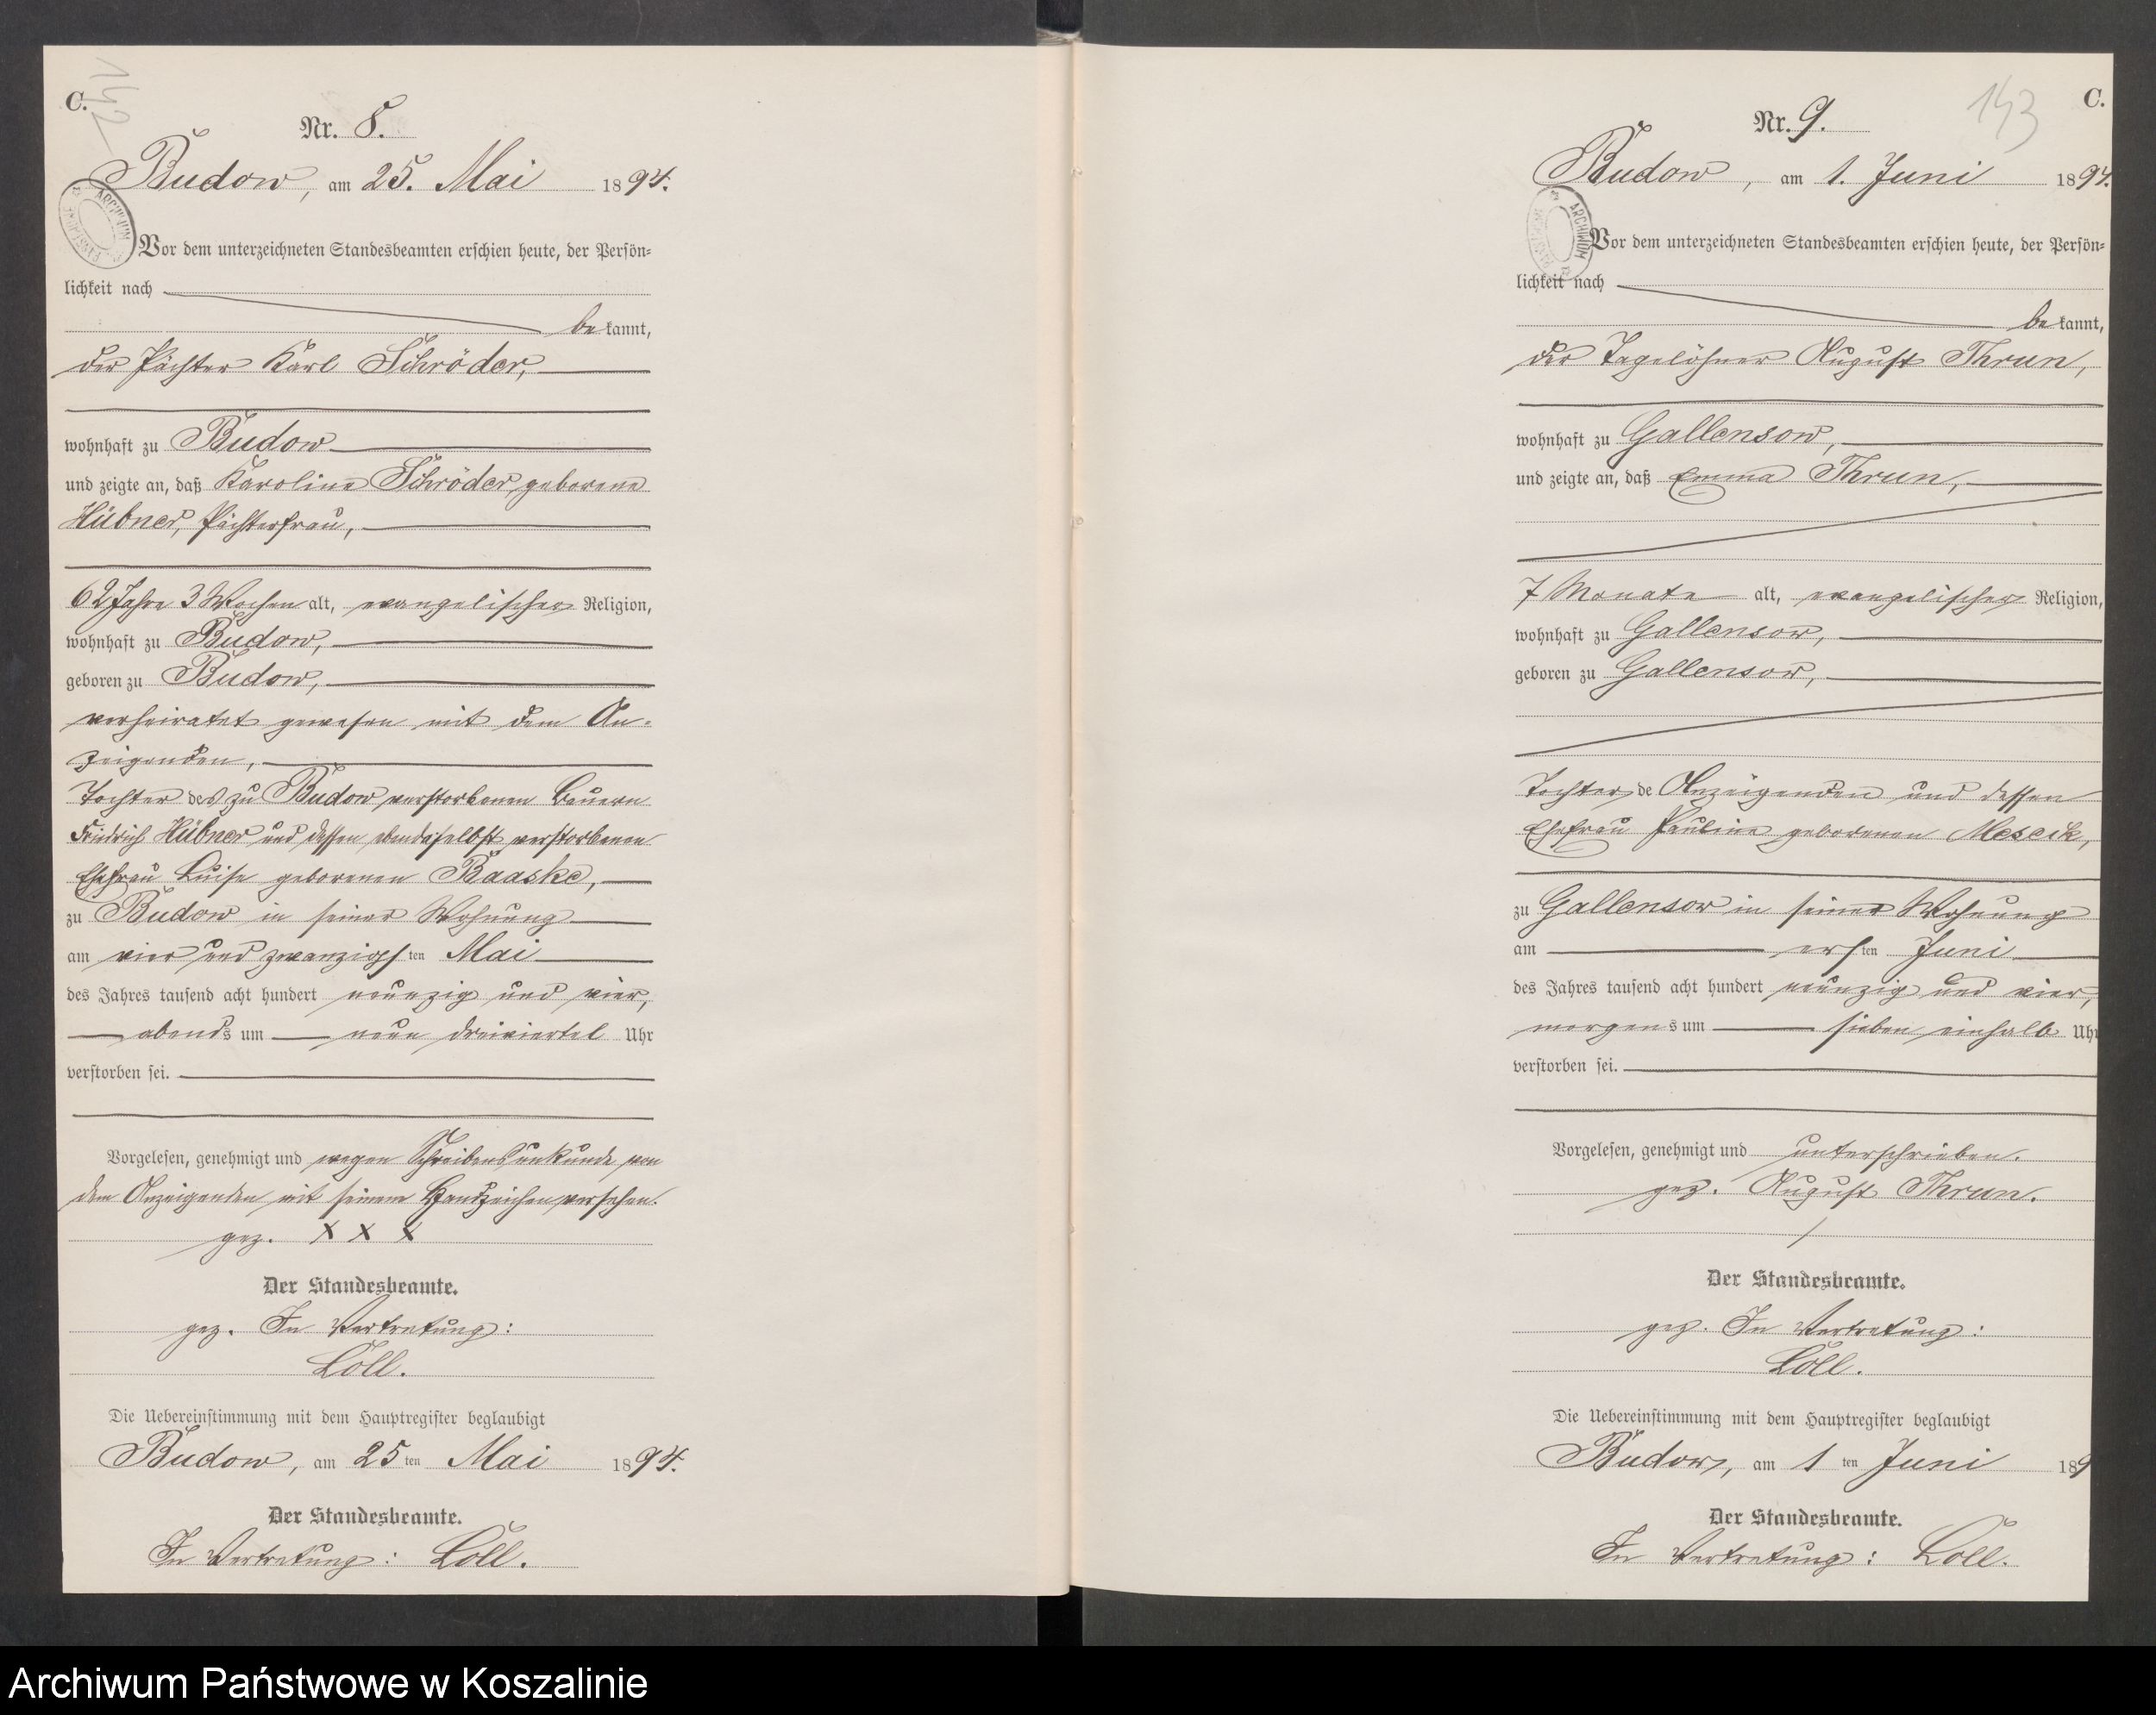 C.
142
Nr. 8.
Budow, am 25. Mai 1894.
Vor dem unterzeichneten Standesbeamten erschien heute, der Persön-
lichkeit nach
bekannt,
der Pächter Karl Schröder,
wohnhaft zu Budow
und zeigte an, daß Karoline Schröder geborene
Hübner, Pächterfrau,
62 Jahre 3 Wochen alt, evangelischer Religion,
wohnhaft zu Budow,
geboren zu Budow,
verheiratet gewesen mit dem An-
zeigenden,
Tochter des zu Budow verstorbenen Bauern
Friedrich Hübner und dessen ebendaselbst verstorbenen
Ehefrau Luise geborenen Baaske,
zu Budow in seiner Wohnung
am vier und zwanzigsten Mai
des Jahres tausend acht hundert neunzig und vier,
abends um neun dreiviertel Uhr
verstorben sei.
Vorgelesen, genehmigt und wegen Schreibensunkunde von
dem Anzeigenden mit seinem Handzeichen versehen.
gez. X X X
Der Standesbeamte.
gez. In Vertretung:
Löll.
Die Uebereinstimmung mit dem Hauptregister beglaubigt
Budow, am 25ten Mai 1894.
Der Standesbeamte.
In Vertretung: Löll.
143
C.
Nr. 9.
Budow, am 1. Juni 1894.
ARCHIWUM
Vor dem unterzeichneten Standesbeamten erschien heute, der Persön-
lichkeit nach
bekannt,
der Tagelöhner August Thrun,
wohnhaft zu Gallensow,
und zeigte an, daß Emma Thrun,
7 Monate alt, evangelischer Religion,
wohnhaft zu Gallensow,
geboren zu Gallensow,
Tochter de Anzeigenden und dessen
Ehefrau Pauline geborenen Mescik,
zu Gallensow in seiner Wohnung
am ersten Juni
des Jahres tausend acht hundert neunzig und vier,
morgens um sieben einhalb Uhr
verstorben sei.
Vorgelesen, genehmigt und unterschrieben.
gez. August Thrun.
Der Standesbeamte.
gez. In Vertretung:
Löll.
Die Uebereinstimmung mit dem Hauptregister beglaubigt
Budow, am 1ten Juni 189
Der Standesbeamte.
In Vertretung: Löll.
Archiwum Państwowe w Koszalinie